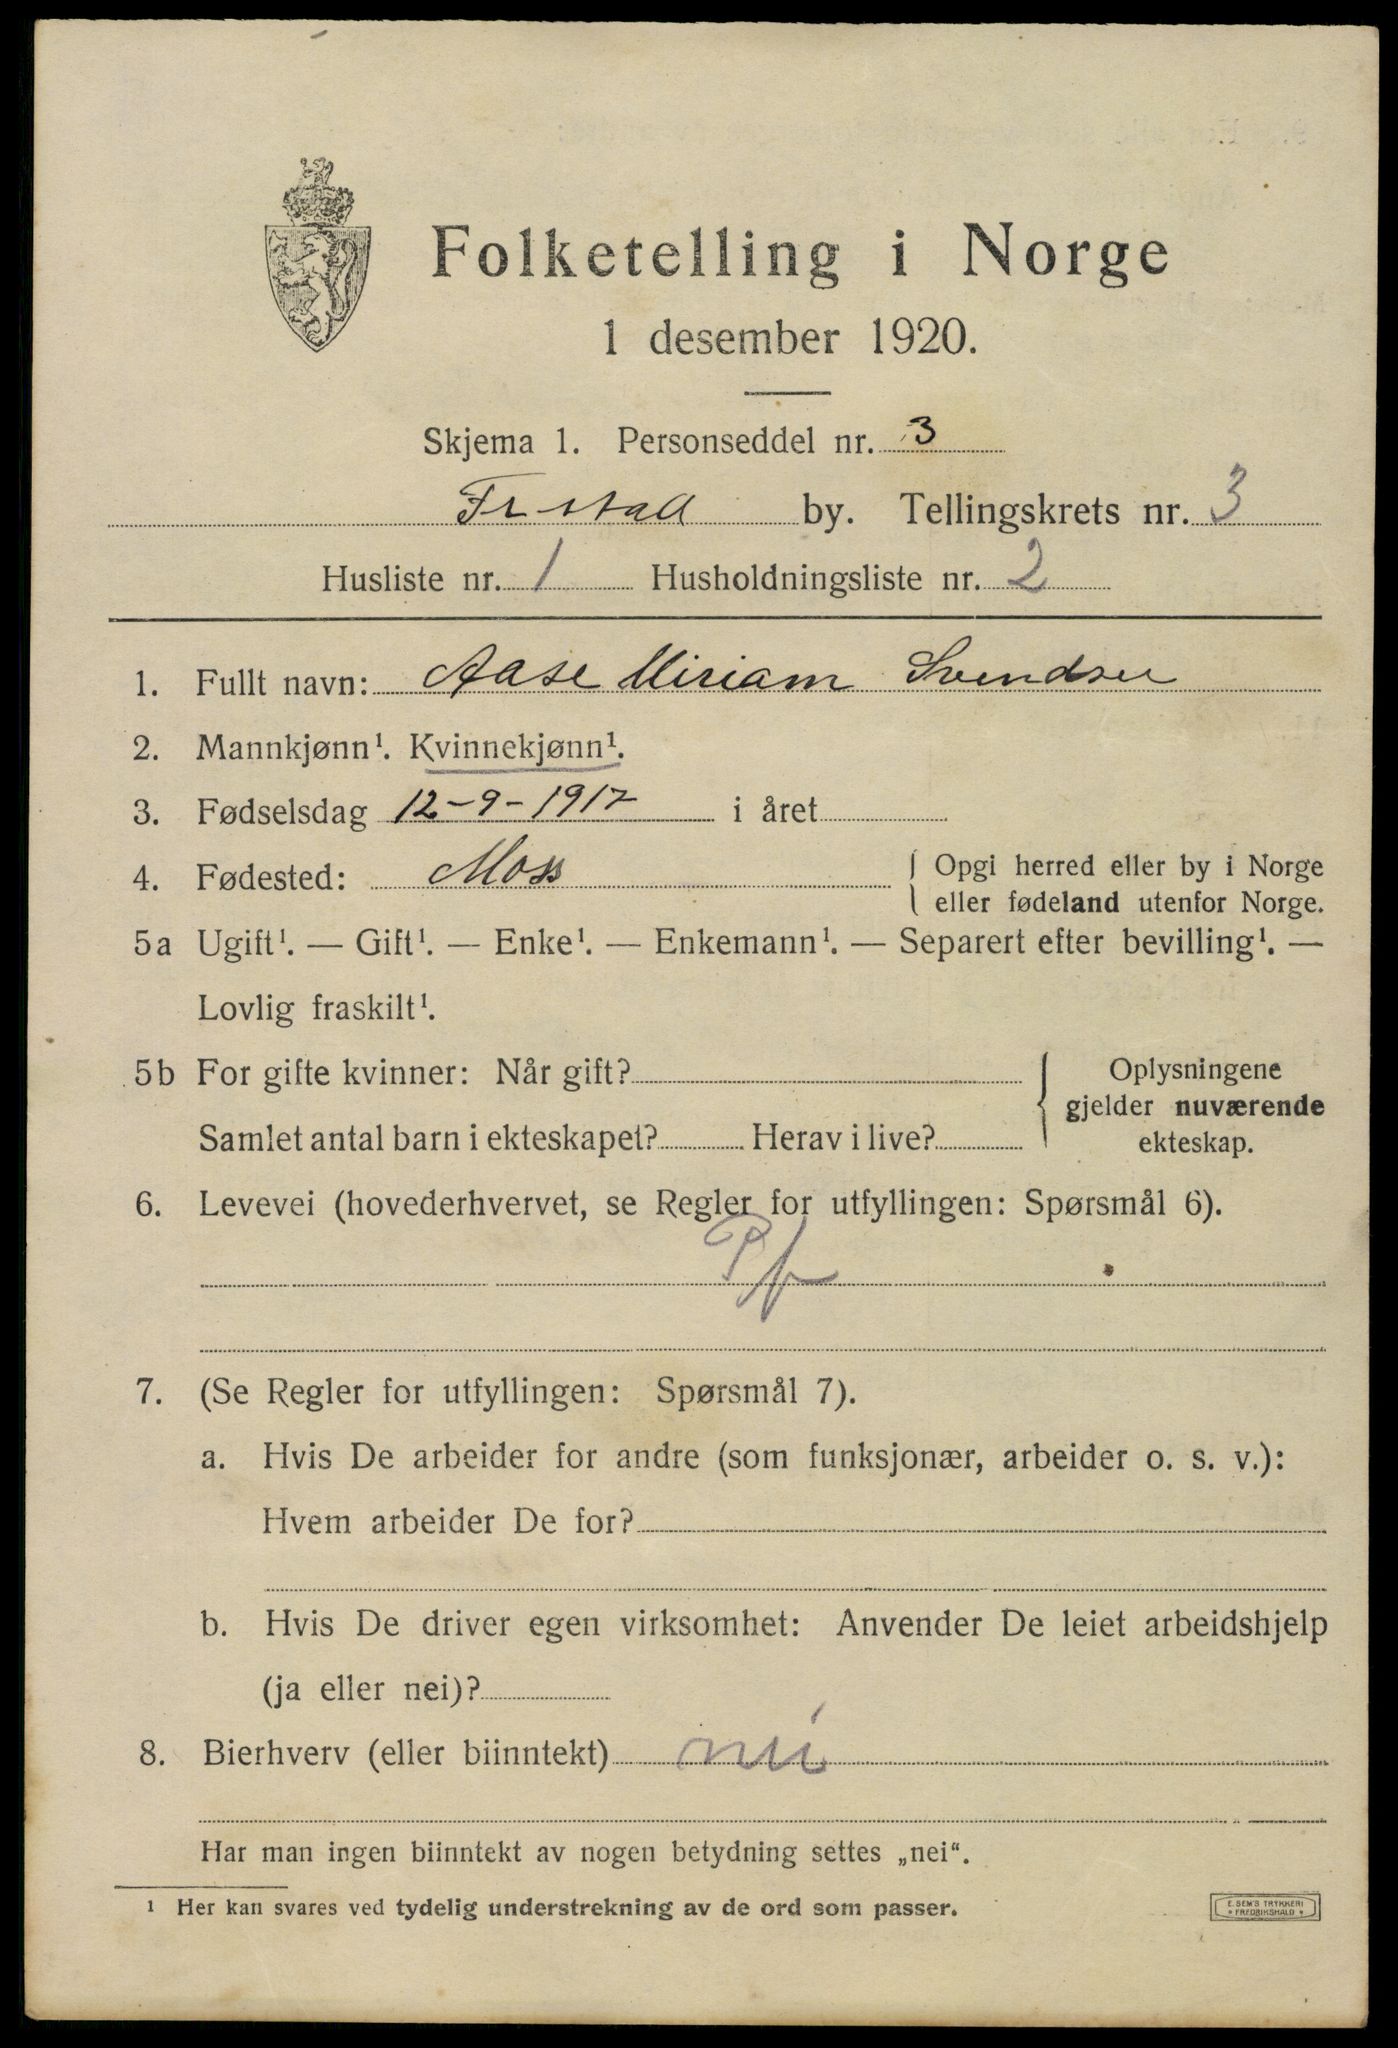 Folketelling i Norge
1 desember 1920.
Skjema 1. Personseddel nr. 3
Fr.stad by. Tellingskrets nr. 3
Husliste nr. 1 Husholdningsliste nr. 2
1. Fullt navn: Aase Miriam Svendsen
2. Mannkjønn¹. Kvinnekjønn¹.
3. Fødselsdag 12-9-1917 i året
4. Fødested: Moss { Opgi herred eller by i Norge
eller fødeland utenfor Norge.
5a Ugift¹. — Gift¹. — Enke¹. — Enkemann¹. — Separert efter bevilling¹. —
Lovlig fraskilt¹.
5b For gifte kvinner: Når gift?
Samlet antal barn i ekteskapet? Herav i live?
{ Oplysningene
gjelder nuværende
ekteskap.
6. Levevei (hovederhvervet, se Regler for utfyllingen: Spørsmål 6).
Pf
7. (Se Regler for utfyllingen: Spørsmål 7).
a. Hvis De arbeider for andre (som funksjonær, arbeider o. s. v.):
Hvem arbeider De for?
b. Hvis De driver egen virksomhet: Anvender De leiet arbeidshjelp
(ja eller nei)?
8. Bierhverv (eller biinntekt) nei
Har man ingen biinntekt av nogen betydning settes „nei“.
¹ Her kan svares ved tydelig understrekning av de ord som passer.
E. SEM'S TRYKKERI
* FREDRIKSHALD *